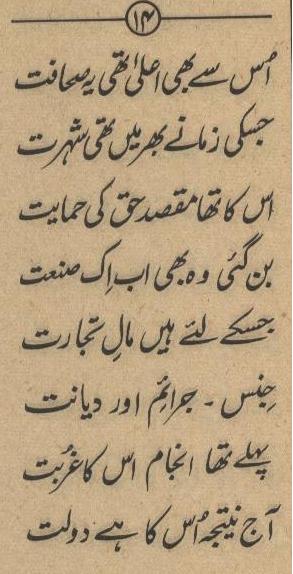 ۱۴
اُس سے بھی اعلیٰ تھی یہ صحافت
جسکی زمانے بھر میں تھی شہرت
اس کا تھا مقصد حق کی حمایت
بن گئی وہ بھی اب اِک صنعت
جسکے لئے ہیں مالِ تجارت
جِنس ۔ جرائم اور دیانت
پہلے تھا انجام اس کا غُربت
آج نتیجہ اُس کا ہے دولت